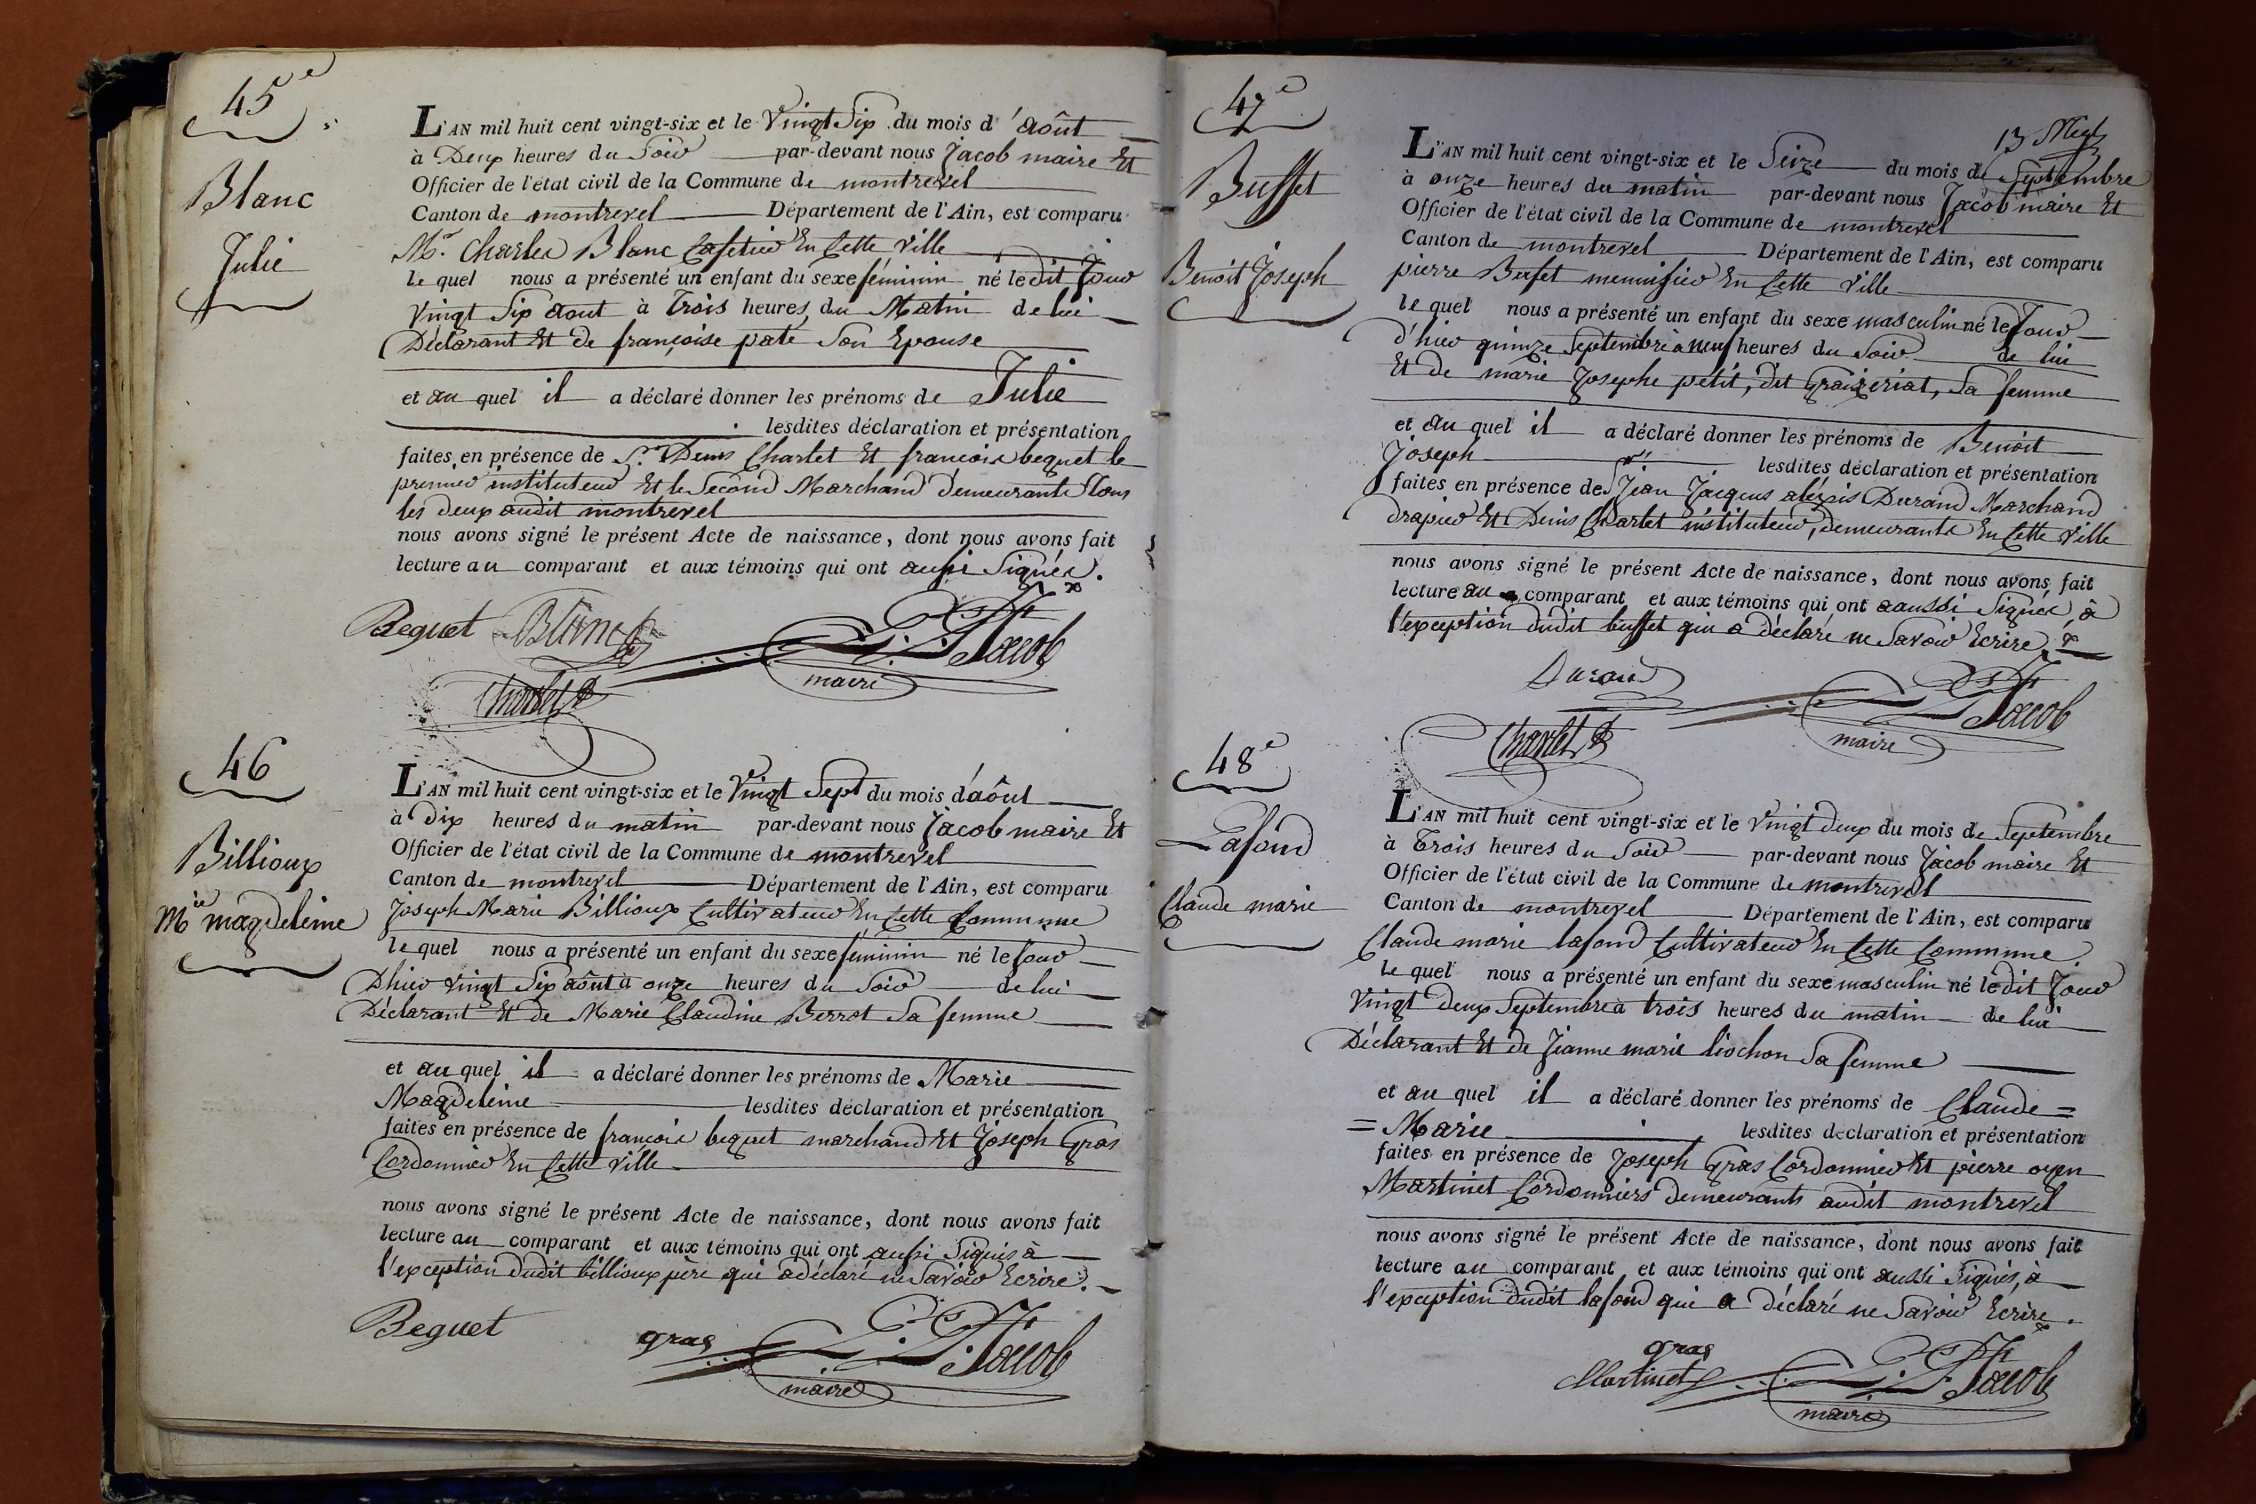 45e
Blanc
Julie
L'AN mil huit cent vingt-six et le Vingt Six du mois d'août
à Deux heures du Soir par-devant nous Jacob maire Et
Officier de l'état civil de la Commune de montrevel
Canton de montrevel Département de l'Ain, est comparu
Mr. Charles Blanc Cafetier En Cette Ville
le quel nous a présenté un enfant du sexe féminin né ledit Jour
Vingt Six aout à Trois heures du Matin de lui
Déclarant Et de françoise paté Son Epouse
et au quel il a déclaré donner les prénoms de Julie
lesdites déclaration et présentation
faites en présence de Sr. Denis Charlet Et francois bequet le
premier instituteur Et le Second Marchand demeurants tous
les deux audit montrevel
nous avons signé le présent Acte de naissance, dont nous avons fait
lecture au comparant et aux témoins qui ont aussi Signés.
Bequet Blanc Jacob
maire
Charlet
46
Billioux
Mie magdeleine
L'AN mil huit cent vingt-six et le Vingt Sept du mois d'août
à dix heures du matin par-devant nous Jacob maire Et
Officier de l'état civil de la Commune de montrevel
Canton de montrevel Département de l'Ain, est comparu
Joseph Marie Billioux Cultivateur En Cette Commune
le quel nous a présenté un enfant du sexe féminin né le Jour
D'hier vingt Six août à onze heures du Soir de lui
Déclarant Et de Marie Claudine Berrot Sa femme
et au quel il a déclaré donner les prénoms de Marie
Magdeleine lesdites déclaration et présentation
faites en présence de françois bequet marchand Et Joseph Gras
Cordonnier En Cette Ville
nous avons signé le présent Acte de naissance, dont nous avons fait
lecture au comparant et aux témoins qui ont aussi Signés à
l'exception dudit billioux père qui a déclaré ne Savoir Ecrire.
Bequet gras Jacob
maire
47e
Buffet
Benoit Joseph
13
L'AN mil huit cent vingt-six et le Seize du mois de Septembre
à onze heures du matin par-devant nous Jacob maire Et
Officier de l'état civil de la Commune de montrevel
Canton de montrevel Département de l'Ain, est comparu
pierre Bufet menuisier En Cette Ville
le quel nous a présenté un enfant du sexe masculin né le Jour
d'hier quinze Septembre à neuf heures du Soir de lui
Et de marie Josephe petit, dit Graizeriat, Sa femme
et au quel il a déclaré donner les prénoms de Benoit
Joseph lesdites déclaration et présentation
faites en présence de Jean Jacques aléxis Durand Marchand
drapier Et Denis Charlet instituteur, demeurants En Cette Ville
nous avons signé le présent Acte de naissance, dont nous avons fait
lecture au comparant et aux témoins qui ont aaussi Signés, à
l'exception dudit buffet qui a déclaré ne Savoir Ecrire.
Durand Jacob
maire
Charlet
48e
Lafond
Claude marie
L'AN mil huit cent vingt-six et le vingt deux du mois de Septembre
à Trois heures du Soir par-devant nous Jacob maire Et
Officier de l'état civil de la Commune de montrevel
Canton de montrevel Département de l'Ain, est comparu
Claude marie lafond Cultivateur En Cette Commune.
le quel nous a présenté un enfant du sexe masculin né ledit Jour
Vingt deux Septembre à trois heures du matin de lui
Déclarant Et de Jeanne marie liochon Sa femme
et au quel il a déclaré donner les prénoms de Claude =
= Marie lesdites déclaration et présentation
faites en présence de Joseph Gras Cordonnier Et pierre oyen
Martinet Cordonniers demeurants audit montrevel
nous avons signé le présent Acte de naissance, dont nous avons fait
lecture au comparant et aux témoins qui ont aussi Signés, à
l'exception dudit lafond qui a déclaré ne Savoir Ecrire.
gras
Martinet Jacob
maire